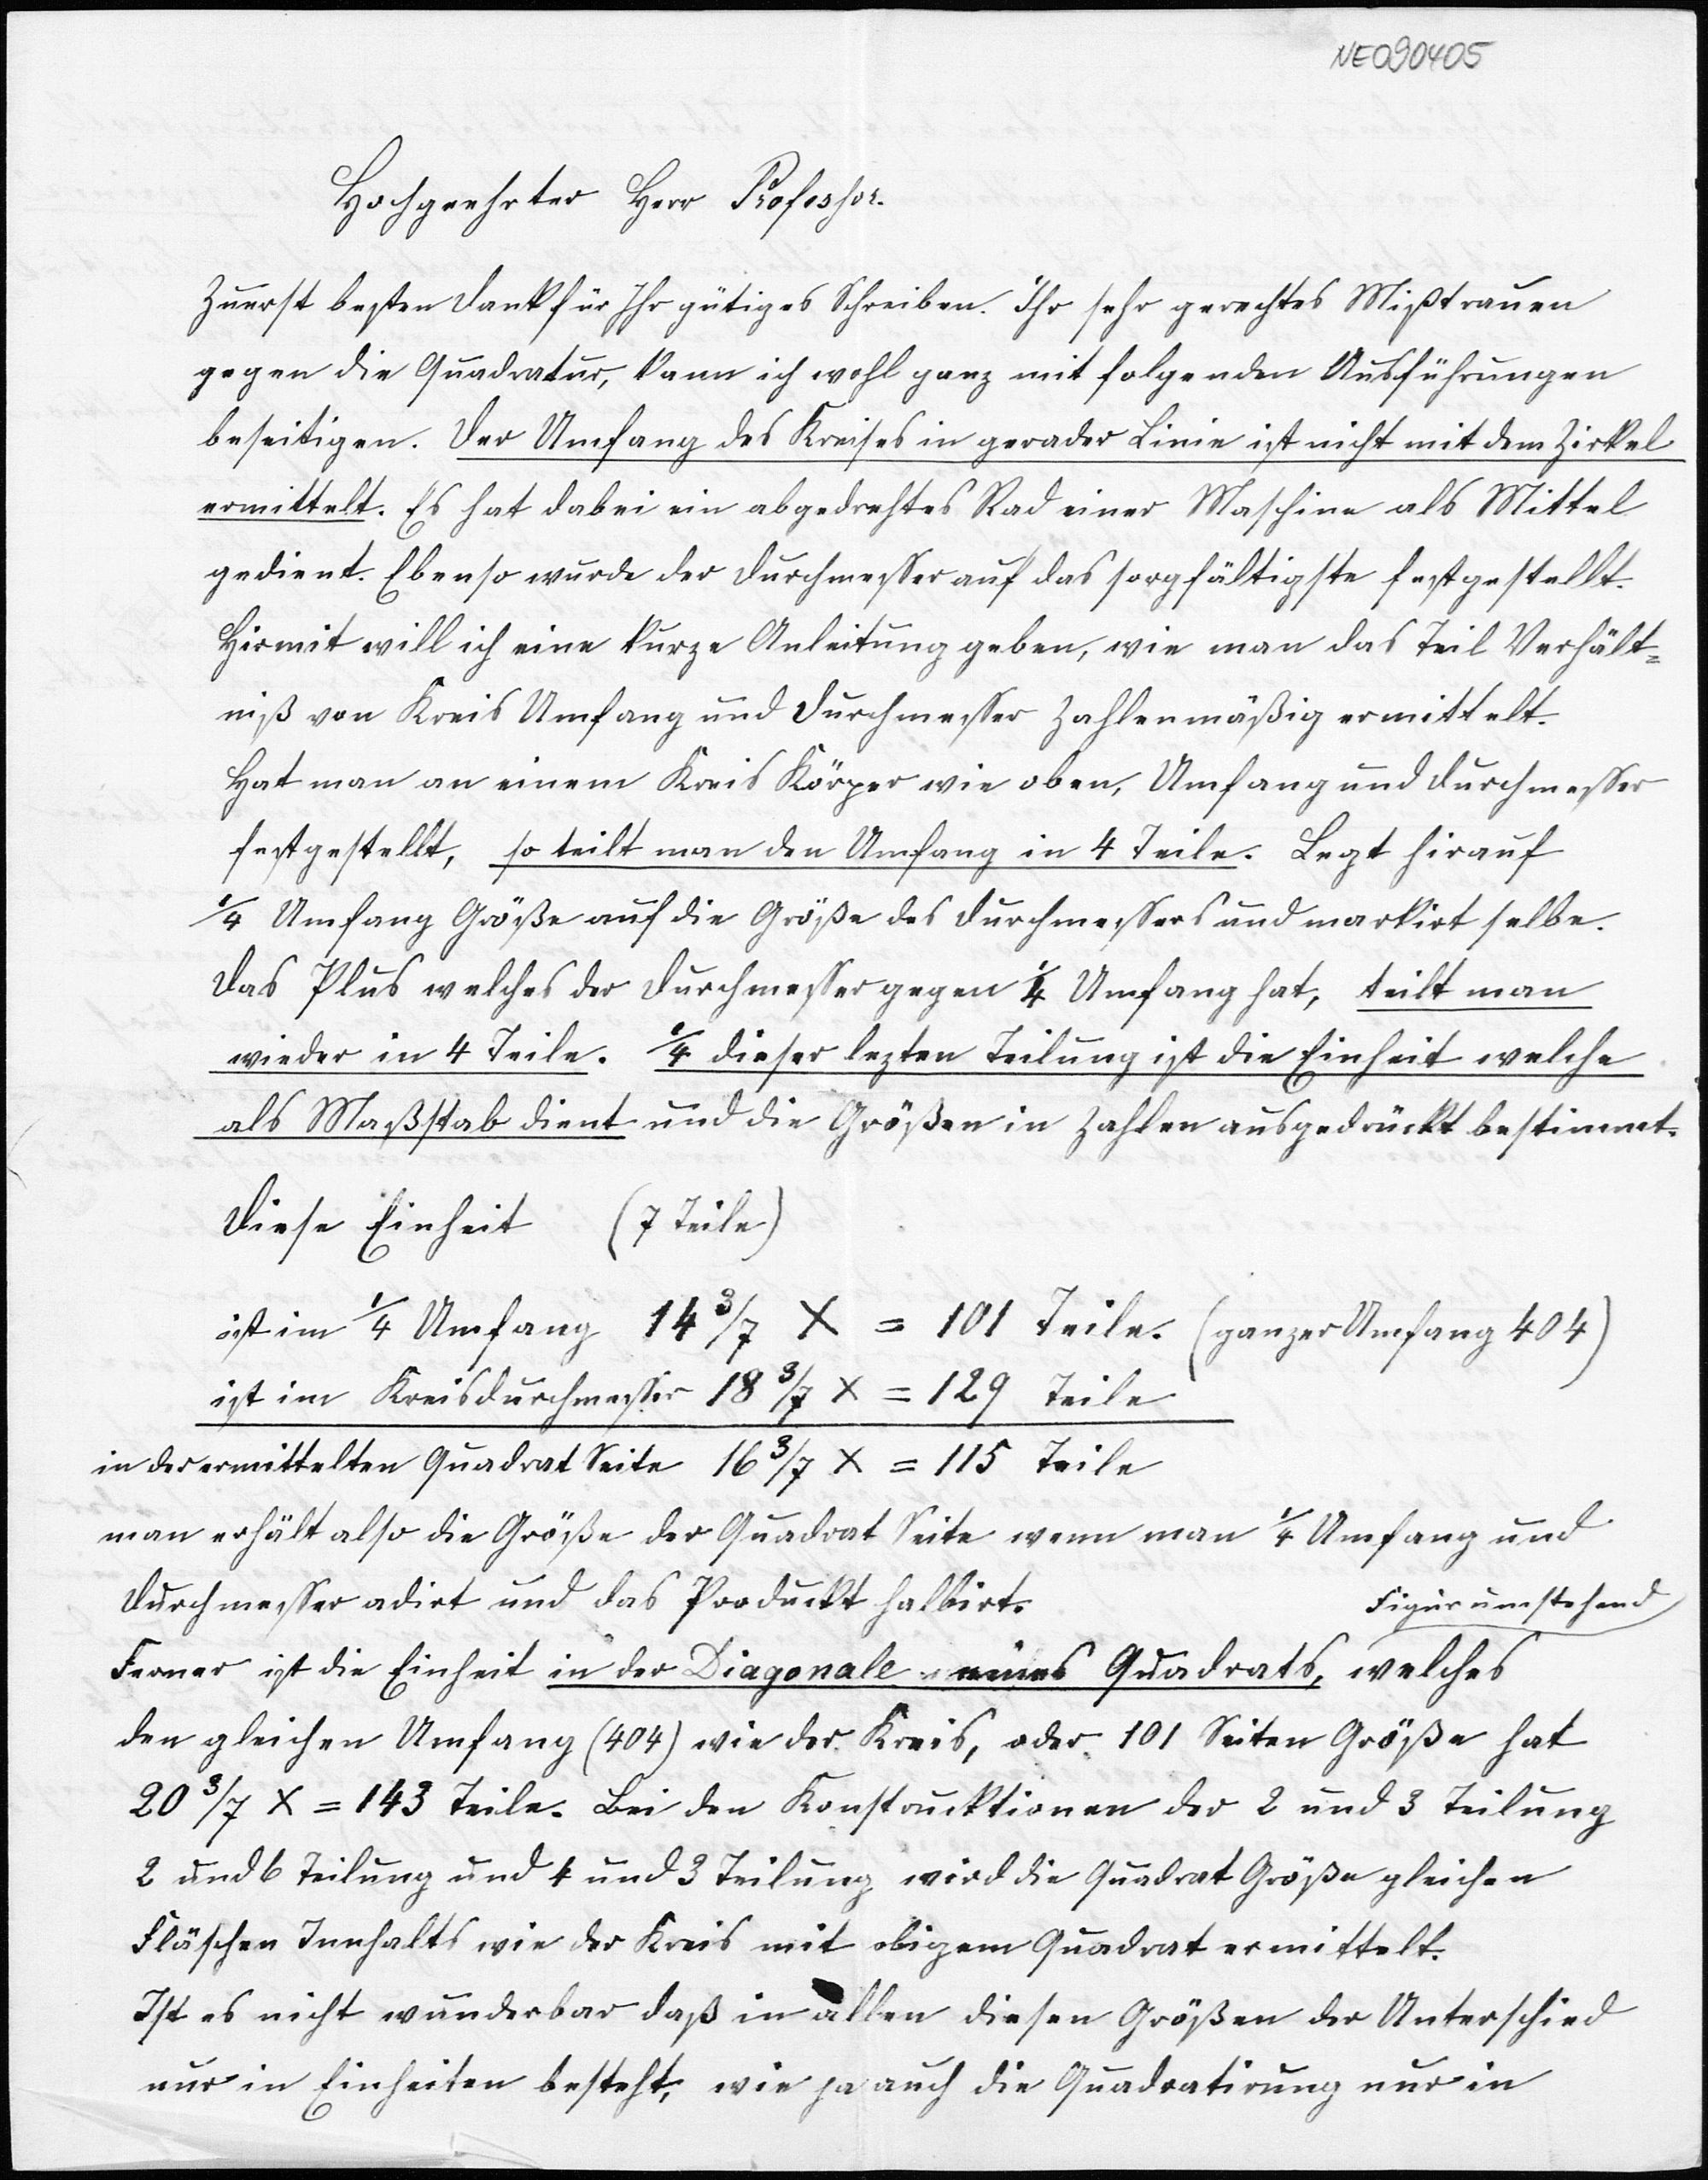 NE090405
Hochgeehrter Herr Professor.
Zuerst besten Dank für Ihr gütiges Schreiben. Ihr sehr gerechtes Mißtrauen
gegen die Quadratur, kann ich wohl ganz mit folgenden Ausführungen
beseitigen. Der Umfang des Kreises in gerader Linie ist nicht mit dem Zirkel
ermittelt. Es hat dabei ein abgedrehtes Rad einer Maschine als Mittel
gedient. Ebenso wurde der Durchmesser auf das sorgfältigste festgestellt.
Hirmit will ich eine kurze Anleitung geben, wie man das Teil Verhält=
niß von Kreis Umfang und Durchmesser Zahlenmäßig ermittelt.
Hat man an einem Kreis Körper wie oben, Umfang und Durchmesser
festgestellt, so teilt man den Umfang in 4 Teile. Legt hirauf
1/4 Umfang Größe auf die Größe des Durchmessers und markirt selbe.
Das Plus welches der Durchmesser gegen 1/4 Umfang hat, teilt man
wieder in 4 Teile. 1/4 dieser lezten Teilung ist die Einheit welche
als Maßstab dient und die Größen in Zahlen ausgedrückt bestimmt.
Diese Einheit (7 Teile)
ist im 1/4 Umfang 14 3/7 X = 101 Teile. (ganzer Umfang 404)
ist im Kreisdurchmesser 18 3/7 X = 129 Teile
in der ermittelten Quadrat Seite 16 3/7 X = 115 Teile
man erhält also die Größe der Quadrat Seite wenn man 1/4 Umfang und
Durchmesser adirt und das Produckt halbirt.
Figur umstehend
Ferner ist die Einheit in der Diagonale eines Quadrats, welches
den gleichen Umfang (404) wie der Kreis, oder 101 Seiten Größe hat
20 3/7 X = 143 Teile. Bei den Konstrucktionen der 2 und 3 Teilung
2 und 6 Teilung und 4 und 3 Teilung wird die Quadrat Größe gleichen
Fläschen Innhalts wie der Kreis mit obigem Quadrat ermittelt.
Ist es nicht wunderbar daß in allen diesen Größen der Unterschied
nur in Einheiten besteht, wie ja auch die Quadratirung nur in